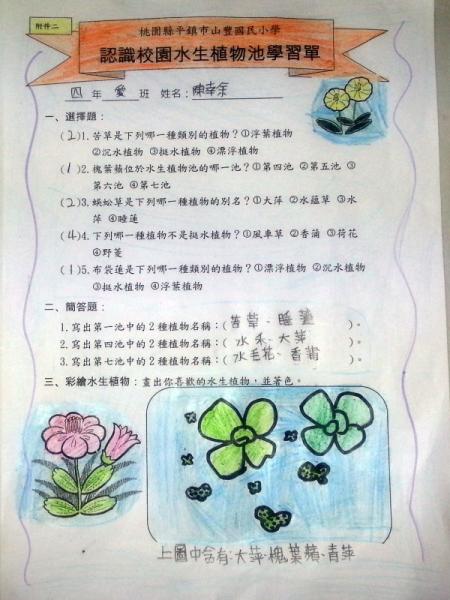 附件二
桃園縣平鎮市山豐國民小學
認識校園水生植物池學習單
四 年 愛 班 姓名：陳幸余
一、選擇題：
(2)1.苦草是下列哪一種類別的植物？①浮葉植物
②沉水植物 ③挺水植物 ④漂浮植物
(1)2.槐葉蘋位於水生植物池的哪一池？①第四池 ②第五池 ③
第六池 ④第七池
(2)3.蜈蚣草是下列哪一種植物的別名？①大萍 ②水蘊草 ③水
萍 ④睡蓮
(4)4.下列哪一種植物不是挺水植物？①風車草 ②香蒲 ③荷花
④野菱
(1)5.布袋蓮是下列哪一種類別的植物？①漂浮植物 ②沉水植物
③挺水植物 ④浮葉植物
二、簡答題：
1.寫出第一池中的2種植物名稱：(苦草、睡蓮)。
2.寫出第四池中的2種植物名稱：(水禾、大萍)。
3.寫出第七池中的2種植物名稱：(水毛花、香蒲)。
三、彩繪水生植物：畫出你喜歡的水生植物，並著色。
上圖中含有:大萍、槐葉蘋、青萍